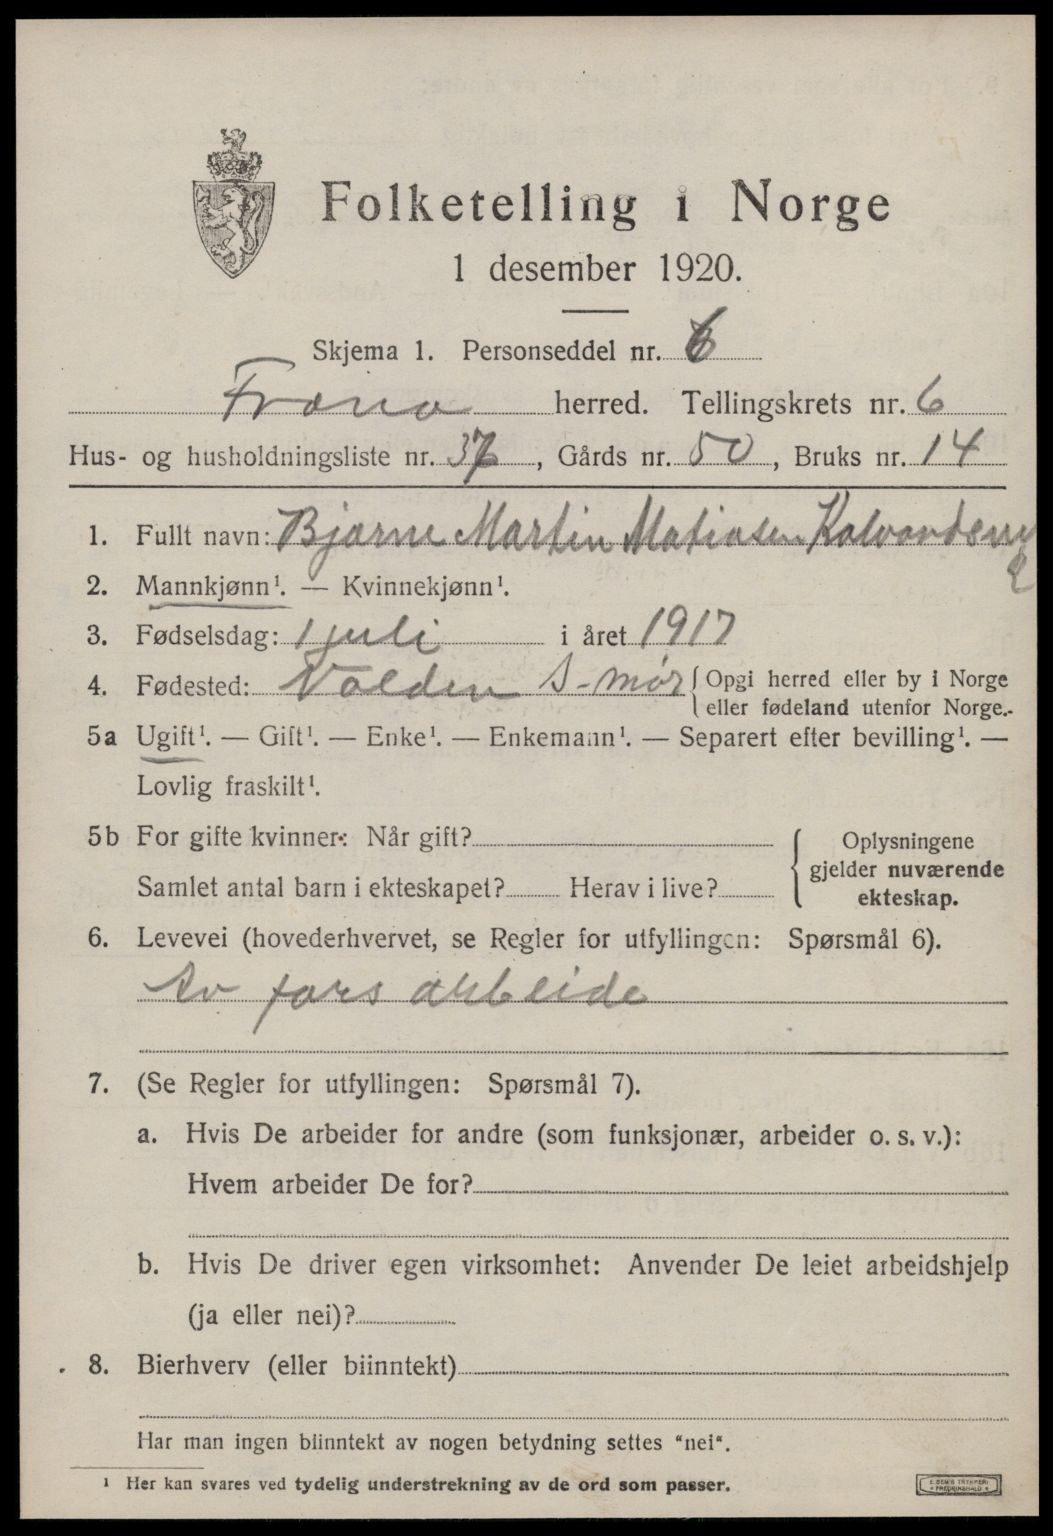 Folketelling i Norge
1 desember 1920.
Skjema 1. Personseddel nr. 6
Fræna herred. Tellingskrets nr. 6
Hus- og husholdningsliste nr. 37, Gårds nr. 50, Bruks nr. 14
1. Fullt navn: Bjarne Martin Matiasen
2. Mannkjønn¹. — Kvinnekjønn¹.
3. Fødselsdag: 1 juli i året 1917
4. Fødested: Volden S-mør { Opgi herred eller by i Norge
eller fødeland utenfor Norge.-
5a Ugift¹. — Gift¹. — Enke¹. — Enkemann¹. — Separert efter bevilling¹. —
Lovlig fraskilt¹.
5b For gifte kvinner: Når gift?
Samlet antal barn i ekteskapet? Herav i live?
{ Oplysningene
gjelder nuværende
ekteskap.
6. Levevei (hovederhvervet, se Regler for utfyllingen: Spørsmål 6).
Av fars arbeide
7. (Se Regler for utfyllingen: Spørsmål 7).
a. Hvis De arbeider for andre (som funksjonær, arbeider o. s. v.):
Hvem arbeider De for?
b. Hvis De driver egen virksomhet: Anvender De leiet arbeidshjelp
(ja eller nei)?
8. Bierhverv (eller biinntekt)
Har man ingen biinntekt av nogen betydning settes "nei".
¹ Her kan svares ved tydelig understrekning av de ord som passer.
E. SEM'S TRYKKERI
FREDRIKSHALD